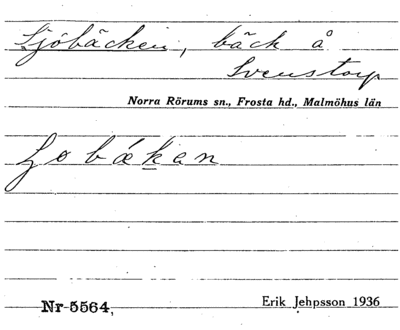 Sjöbäcken, bäck å
Svenstorp
Norra Rörums sn., Frosta hd., Malmöhus län
bákan
Nr 5564,
Erik Jehpsson 1936